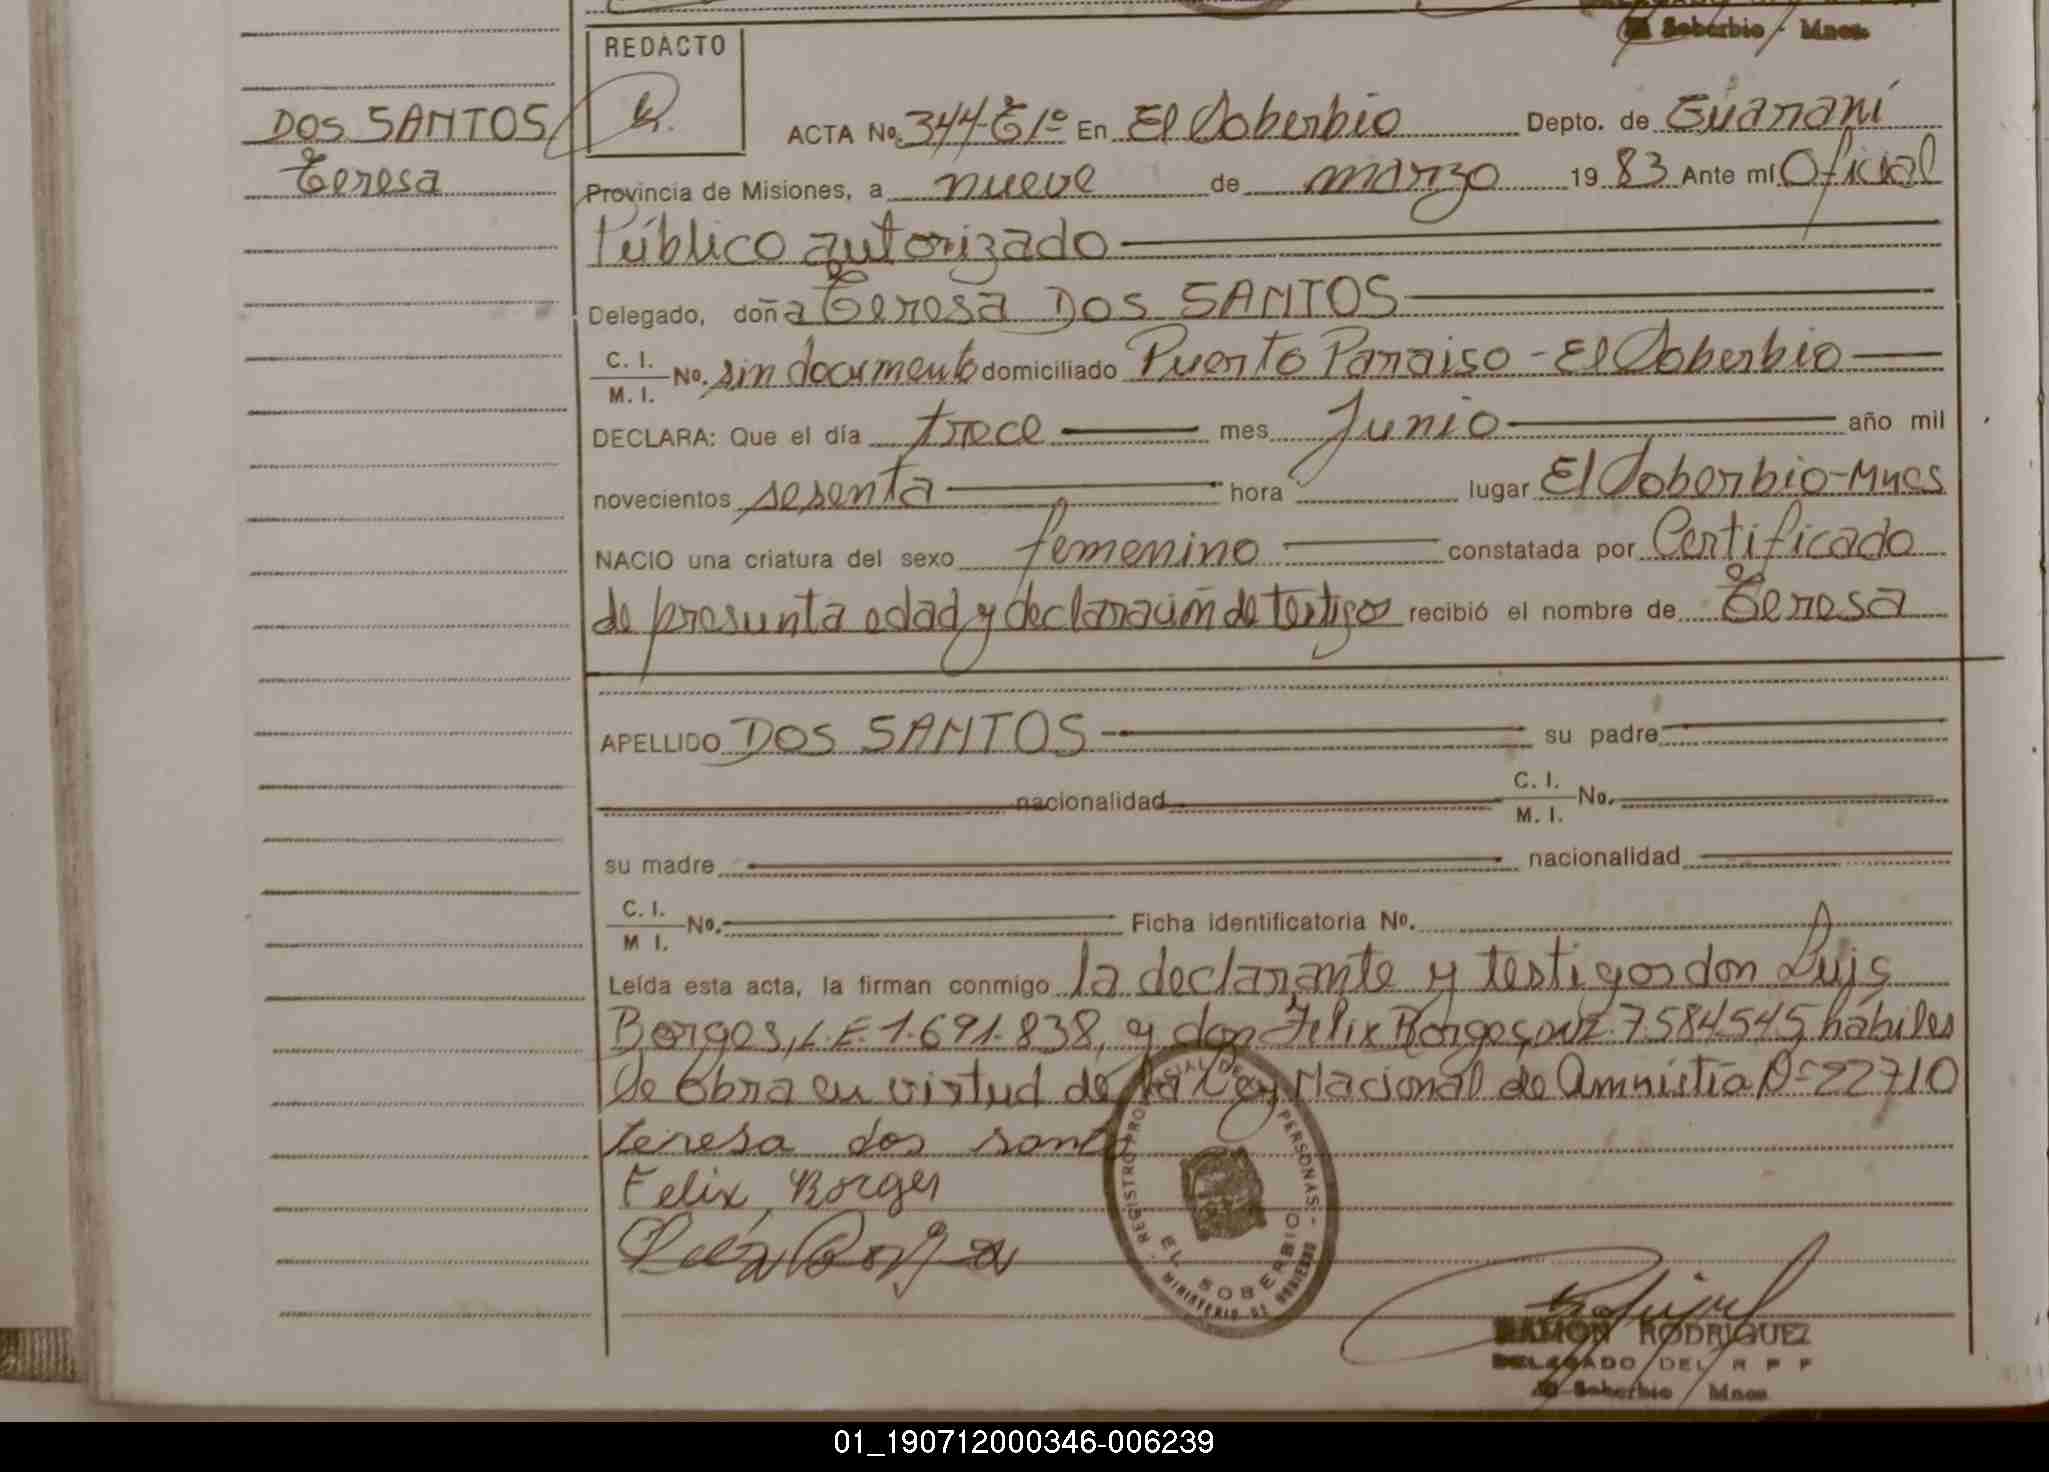 El Soberbio - Mnes.
REDACTO
DOS SANTOS
Teresa
ACTA No. 344-T1º En El Soberbio Depto. de Guaraní
Provincia de Misiones, a nueve de marzo 1983 Ante mí Oficial
Público autorizado
Delegado, doña Teresa DOS SANTOS
C. I.
M. I. No. sin documento domiciliado Puerto Paraiso - El Soberbio
DECLARA: Que el día trece mes Junio año mil
novecientos sesenta hora lugar El Soberbio-Mnes
NACIO una criatura del sexo femenino constatada por Certificado
de presunta edad y declaración de testigos recibió el nombre de Teresa
APELLIDO DOS SANTOS su padre
nacionalidad C. I.
M. I. No.
su madre nacionalidad
C. I.
M I. No. Ficha identificatoria No.
Leída esta acta, la firman conmigo la declarante y testigos don Luis
Borges, L.E. 1.691.838, y don Felix Borges, 7.584.545, habiles
Se obra en virtud de la Ley Nacional de Amnistia Nº 22710
teresa dos santo
Felix Borges
REGISTRO PROVINCIAL DE PERSONAS - EL SOBERBIO - MINISTERIO DE GOBIERNO
RAMON RODRIGUEZ
DELEGADO DEL R P P
El Soberbio Mnes
01_190712000346-006239